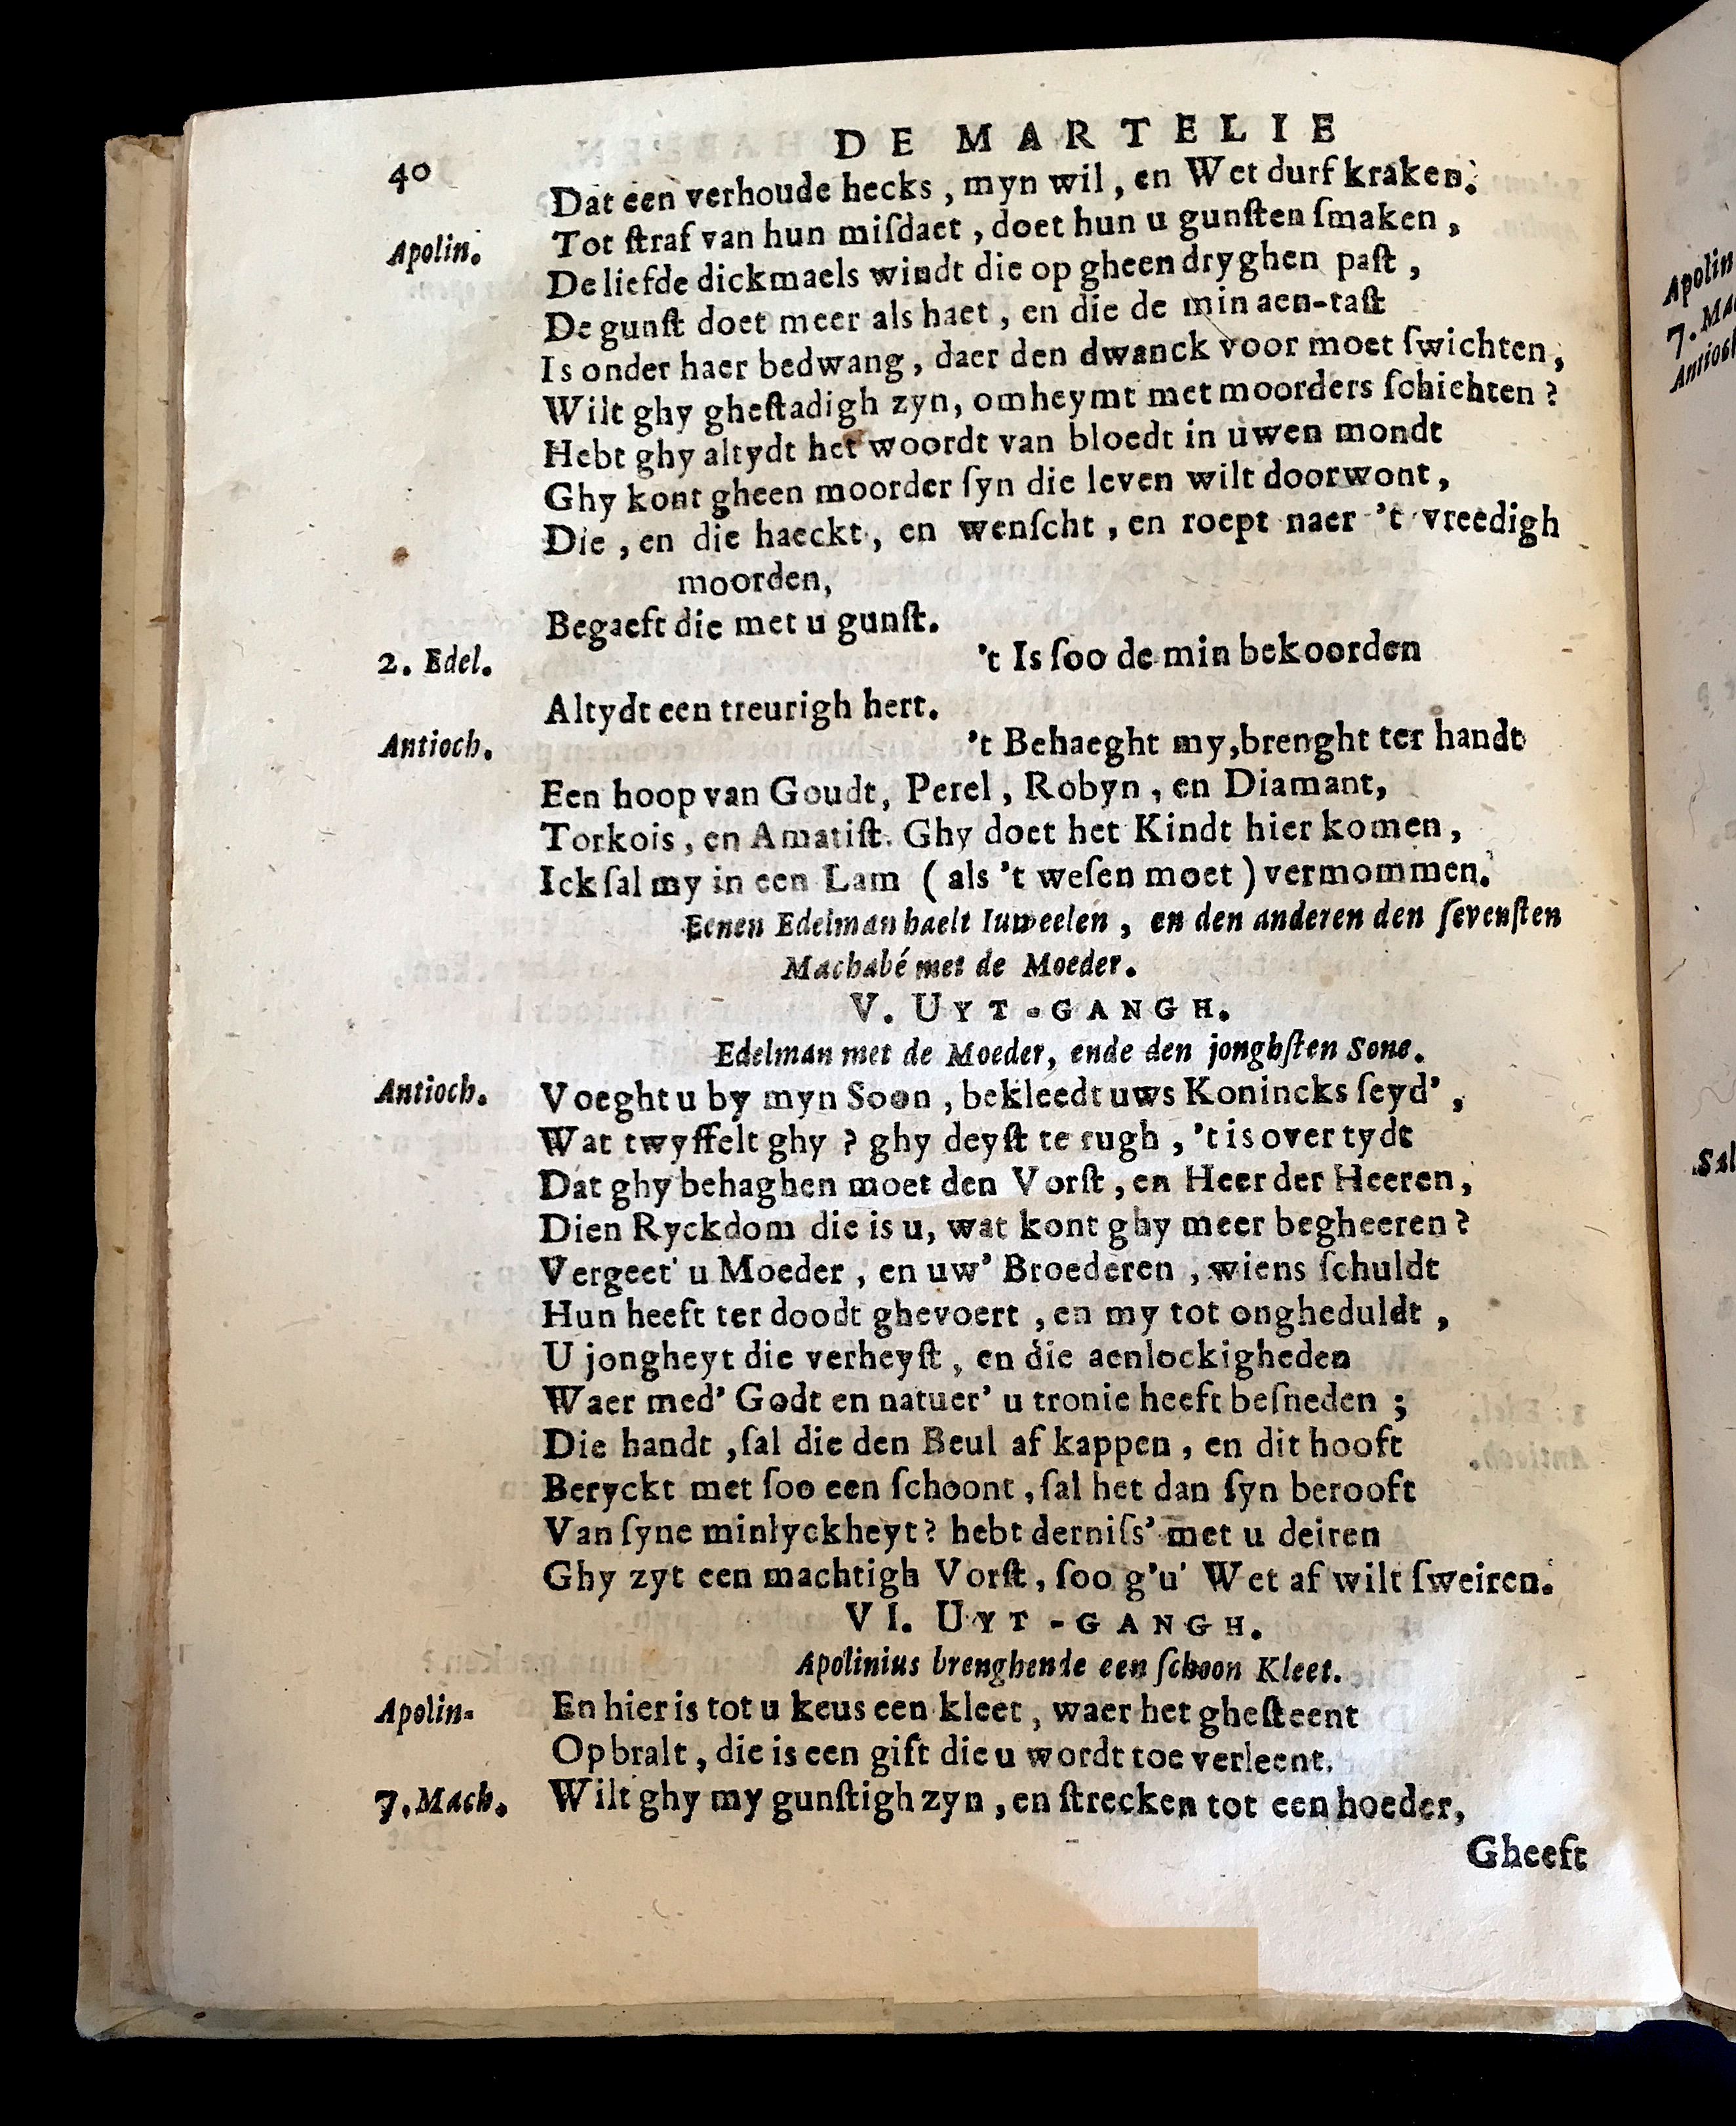 DE MARTELIE
40
Dat een verhoude hecks, myn wil, en Wet durf kraken.
Apolin. Tot ſtraf van hun miſdaet, doet hun u gunſten ſmaken,
De liefde dickmaels windt die op gheen dryghen paſt,
De gunſt doet meer als haet, en die de min aen-taſt
Is onder haer bedwang, daer den dwanck voor moet ſwichten,
Wilt ghy gheſtadigh zyn, omheymt met moorders ſchichten?
Hebt ghy altydt het woordt van bloedt in uwen mondt
Ghy kont gheen moorder ſyn die leven wilt doorwont,
Die, en die haeckt, en wenſcht, en roept naer 't vreedigh
moorden,
Begaeft die met u gunſt.
2. Edel. 't Is ſoo de min bekoorden
Altydt een treurigh hert.
Antioch. 't Behaeght my, brenght ter handt
Een hoop van Goudt, Perel, Robyn, en Diamant,
Torkois, en Amatiſt. Ghy doet het Kindt hier komen,
Ick ſal my in een Lam (als 't weſen moet) vermommen.
Eenen Edelman haelt Iuweelen, en den anderen den ſevenſten
Machabé met de Moeder.
V. UYT-GANGH.
Edelman met de Moeder, ende den jonghſten Sone.
Antioch. Voeght u by myn Soon, bekleedt uws Konincks ſeyd',
Wat twyffelt ghy? ghy deyſt te rugh, 't is over tydt
Dat ghy behaghen moet den Vorſt, en Heer der Heeren,
Dien Ryckdom die is u, wat kont ghy meer begheeren?
Vergeet u Moeder, en uw' Broederen, wiens ſchuldt
Hun heeft ter doodt ghevoert, en my tot ongheduldt,
U jongheyt die verheyſt, en die aenlockigheden
Waer med' Godt en natuer' u tronie heeft beſneden;
Die handt, ſal die den Beul af kappen, en dit hooft
Beryckt met ſoo een ſchoont, ſal het dan ſyn berooft
Van ſyne minlyckheyt? hebt derniſs' met u deiren
Ghy zyt een machtigh Vorſt, ſoo g'u' Wet af wilt ſweiren.
VI. UYT-GANGH.
Apolinius brenghende een ſchoon Kleet.
Apolin. En hier is tot u keus een kleet, waer het gheſteent
Op bralt, die is een gift die u wordt toe verleent.
7. Mach. Wilt ghy my gunſtigh zyn, en ſtrecken tot een hoeder,
Gheeft
Apolin
7. Ma
Antioch
Sal